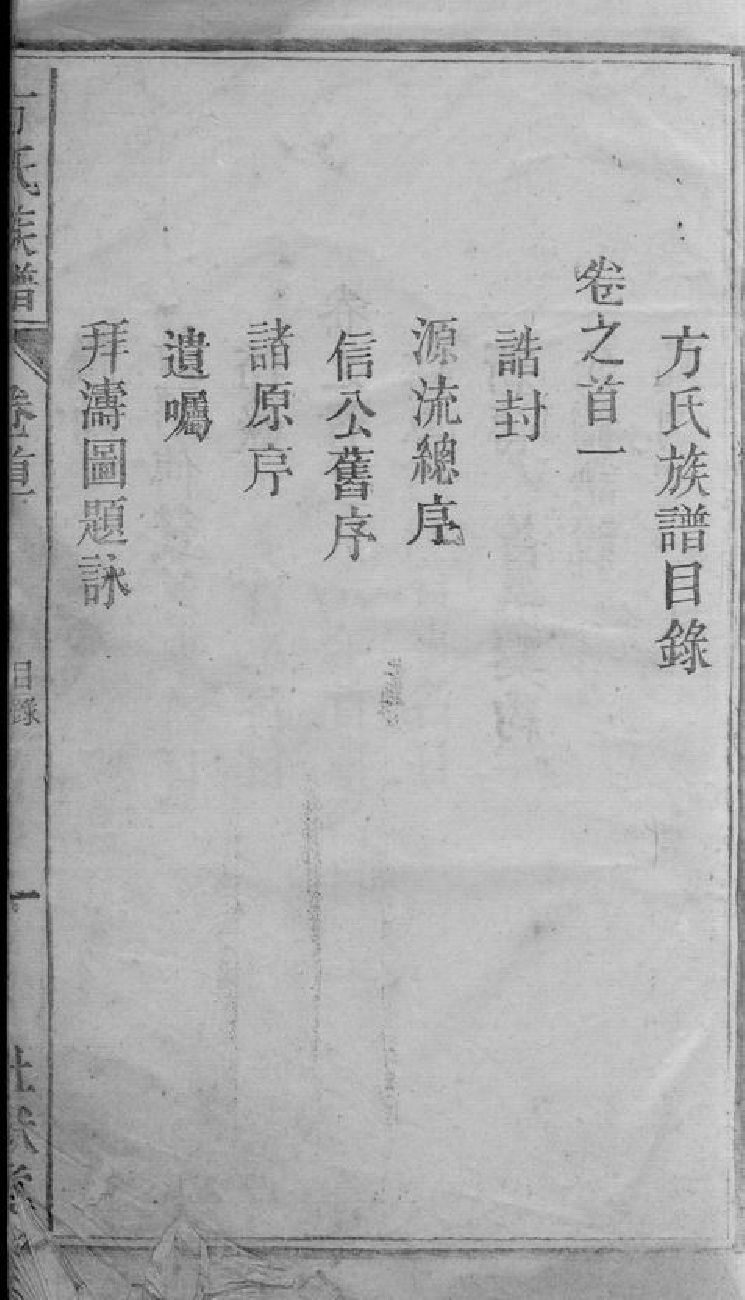 方氏族譜目錄
卷之首一
誥封
源流總序
信公舊序
諸原序
遺囑
拜濤圖題詠
方氏族譜
卷首
目錄
一